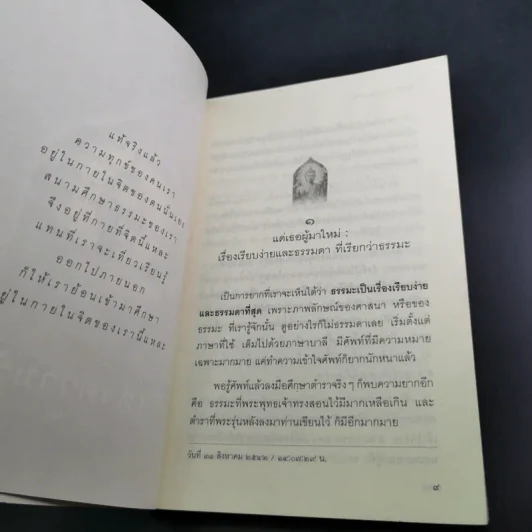 แท้จริงแล้ว
ความทุกข์ของคนเรา
อยู่ในกายในจิตของตนนั่นเอง
สนามศึกษาธรรมะของเรา
จึงอยู่ที่กายที่จิตนี้แหละ
แทนที่เราจะเที่ยวเรียนรู้
ออกไปภายนอก
ก็ให้เราย้อนเข้ามาศึกษา
อยู่ในกายในจิตของเรานี้แหละ
๑
แด่เธอผู้มาใหม่ :
เรื่องเรียบง่ายและธรรมดา ที่เรียกว่าธรรมะ
เป็นการยากที่เราจะเห็นได้ว่า ธรรมะเป็นเรื่องเรียบง่าย
และธรรมดาที่สุด เพราะภาพลักษณ์ของศาสนา หรือของ
ธรรมะ ที่เรารู้จักนั้น ดูอย่างไรก็ไม่ธรรมดาเลย เริ่มตั้งแต่
ภาษาที่ใช้ เต็มไปด้วยภาษาบาลี มีศัพท์ที่มีความหมาย
เฉพาะมากมาย แค่ทำความเข้าใจศัพท์ก็ยากนักหนาแล้ว
พอรู้ศัพท์แล้วลงมือศึกษาตำราจริงๆ ก็พบความยากอีก
คือ ธรรมะที่พระพุทธเจ้าทรงสอนไว้มีมากเหลือเกิน และ
ตำราที่พระรุ่นหลังลงมาท่านเขียนไว้ ก็มีอีกมากมาย
วันที่ ๓๑ สิงหาคม ๒๕๔๒ /
๙